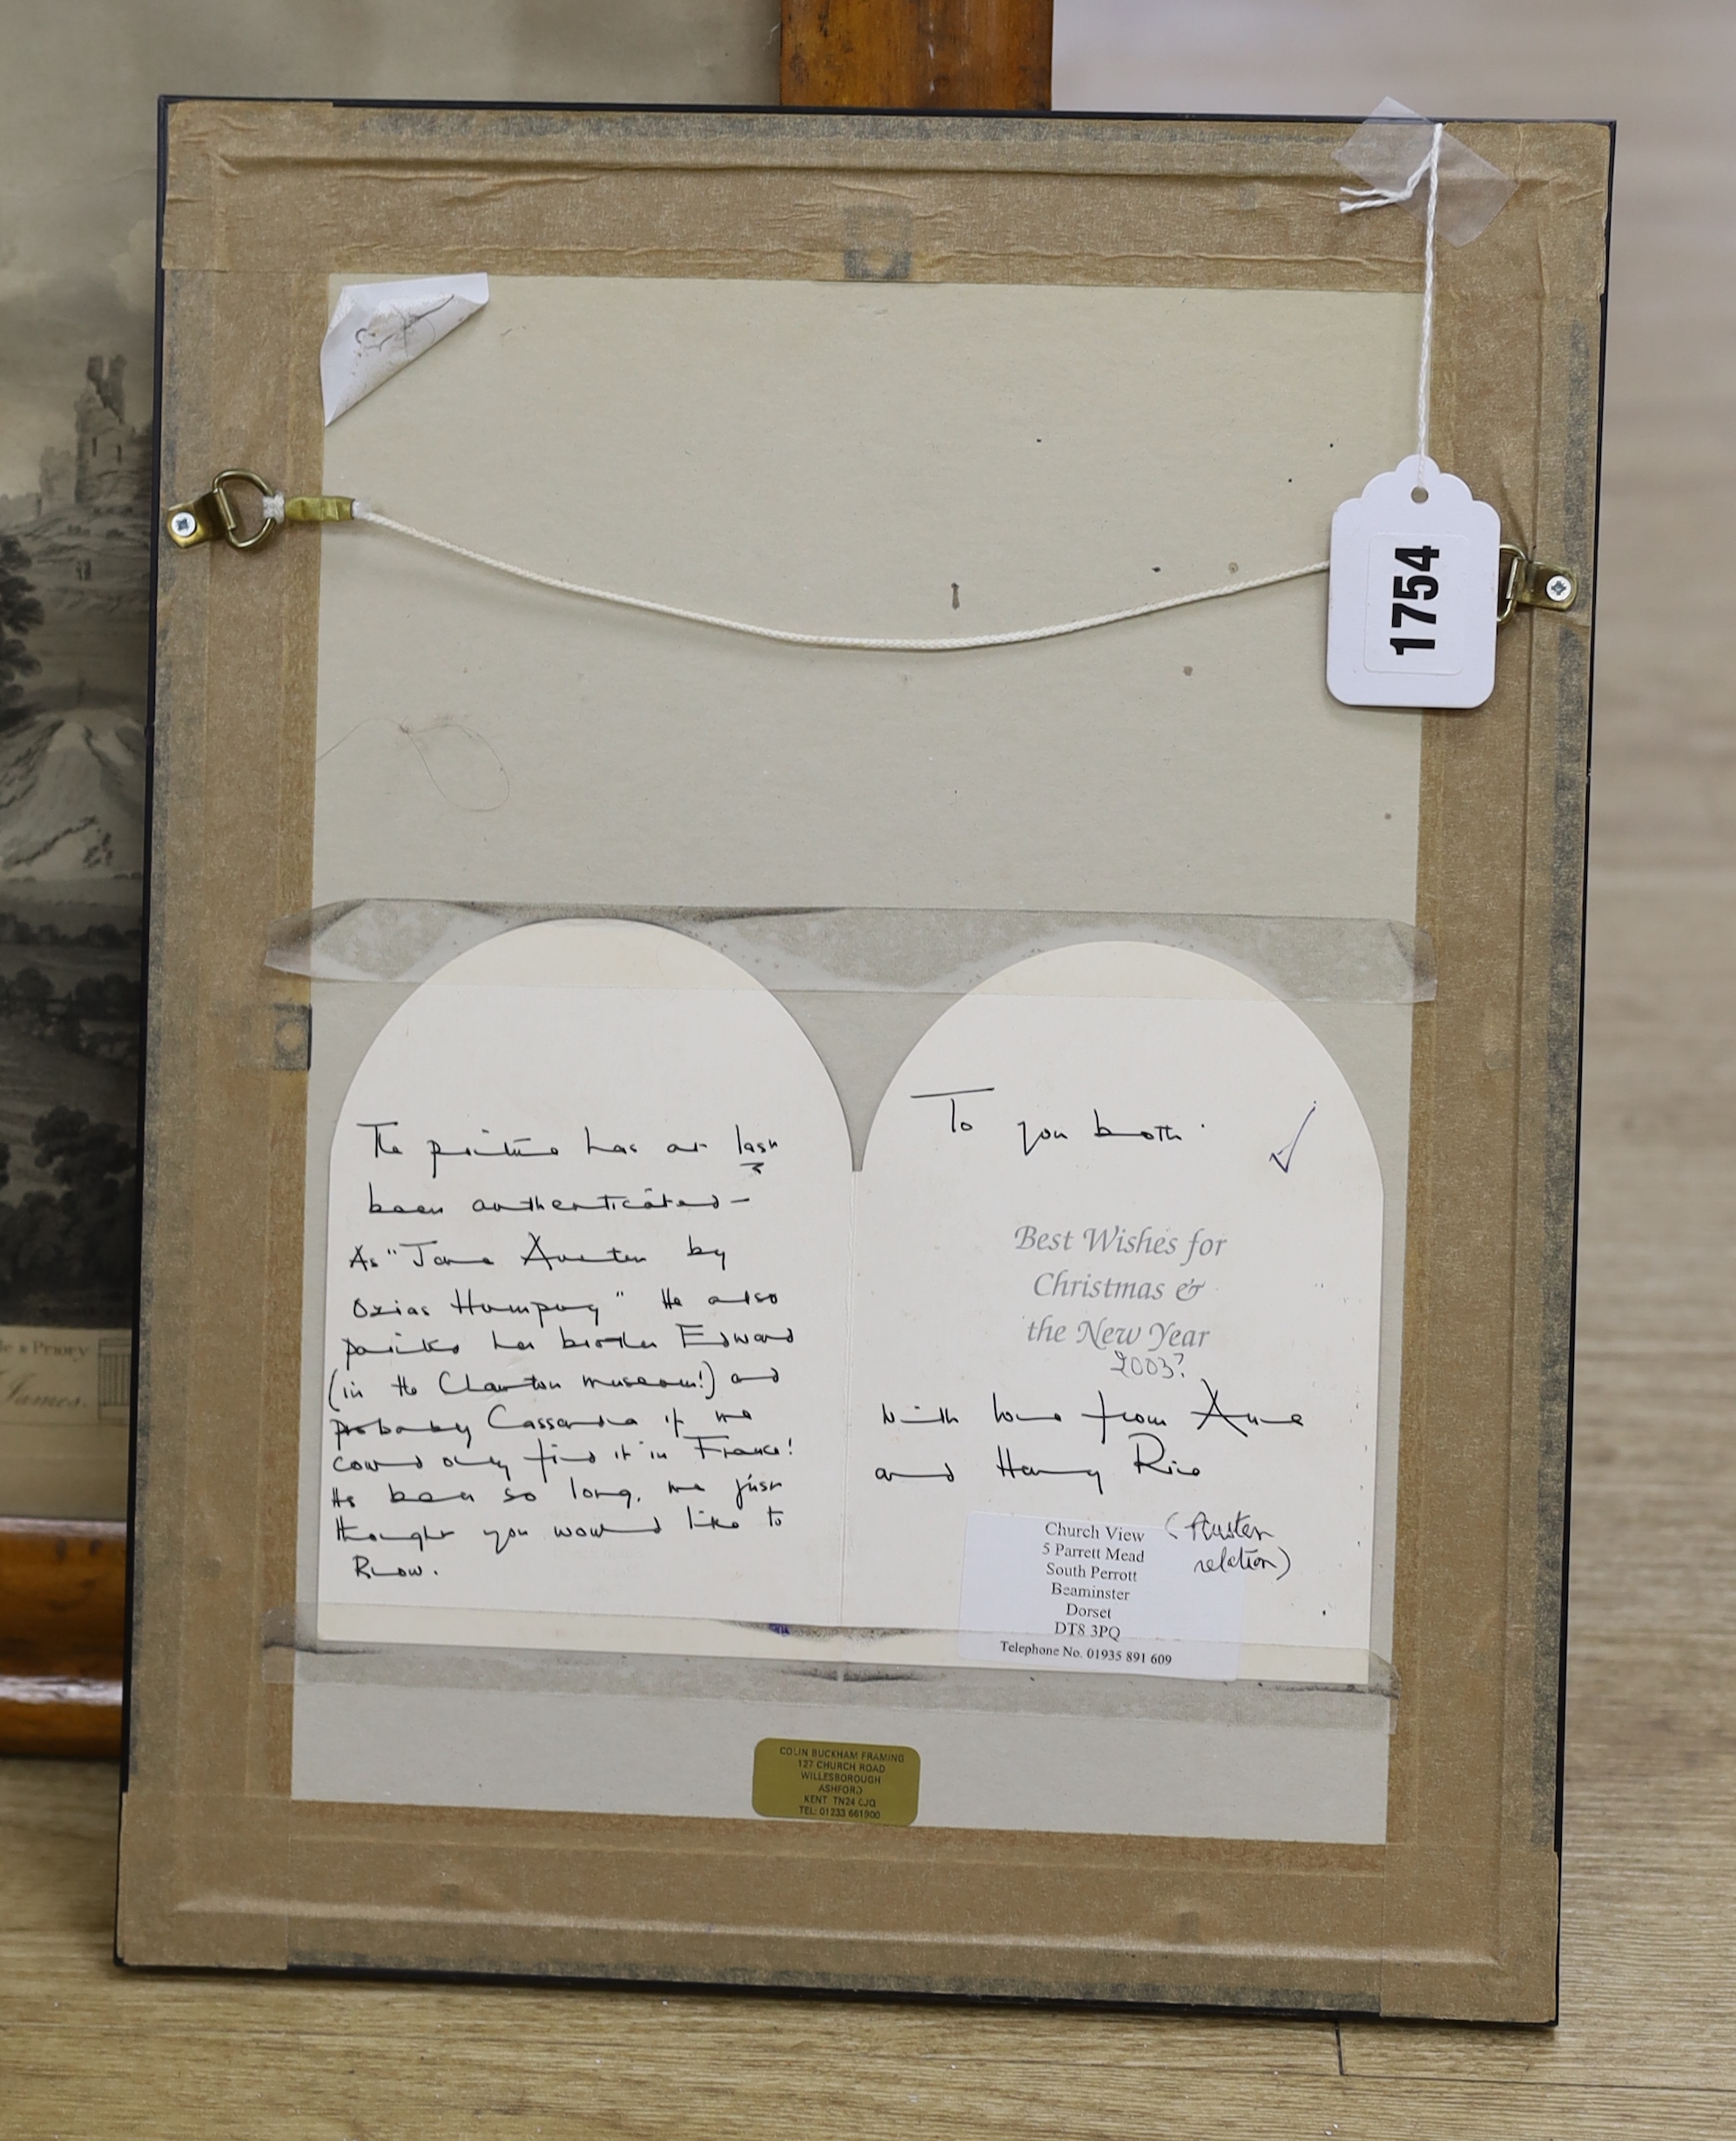 1754
The picture has at last
been authenticated -
As "Jane Austen by
Ozias Humphry" He also
painted her brother Edward
(in the Chawton museum!) and
probably Cassandra if we
could only find it in France!
Its been so long, we just
thought you would like to
Know.
To you both.
Best Wishes for
Christmas &
the New Year
2003?
With love from Anne
and Henry Rice
(Austen
relation)
Church View
5 Parrett Mead
South Perrott
Beaminster
Dorset
DT8 3PQ
Telephone No. 01935 891 609
COLIN BUCKHAM FRAMING
127 CHURCH ROAD
WILLESBOROUGH
ASHFORD
KENT TN24
TEL: 01233 661900
& PRIORY
James.